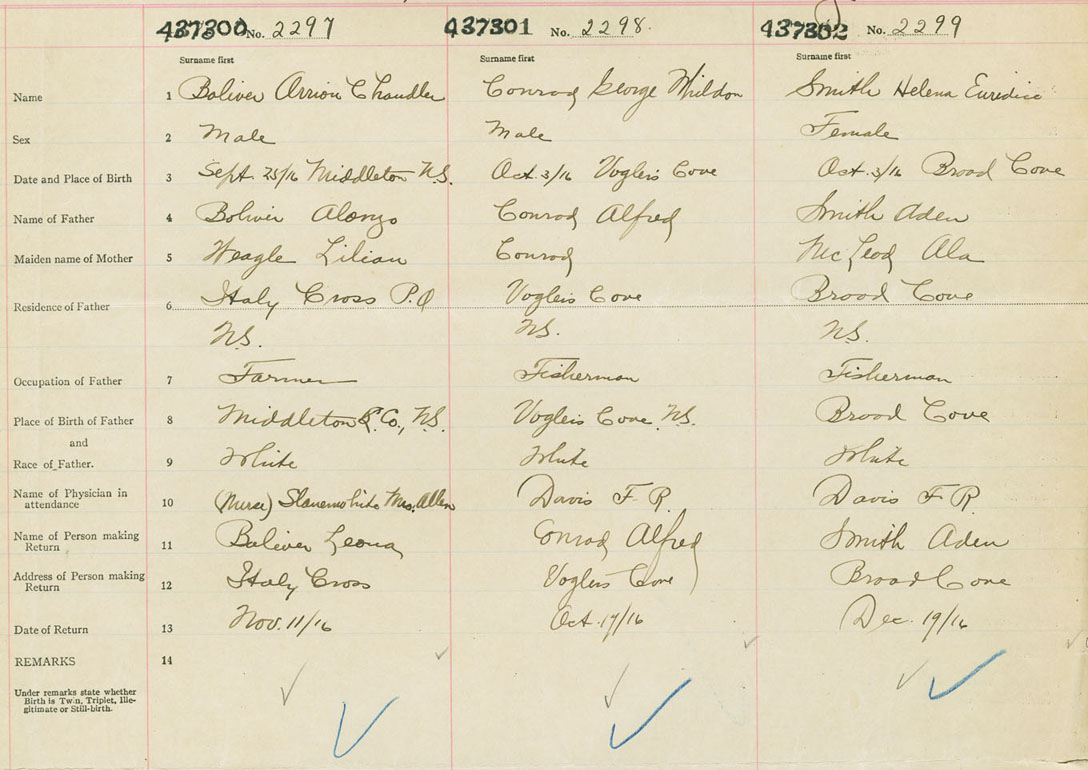 437300 No. 2297 437301 No. 2298. 437302 No. 2299
Surname first Surname first Surname first
Name 1 Boliver Arrion Chandler Conrad George Whildon Smith Helena
Sex 2 Male Male Female
Date and Place of Birth 3 Sept. 25/16 Middleton N.S. Oct. 3/16 Voglers Cove Oct. 3/16 Broad Cove
Name of Father 4 Boliver Alonzo Conrad Alfred Smith Aden
Maiden name of Mother 5 Weagle Lilian Conrad McLeod Ala
Residence of Father 6 Italy Cross P.O Voglers Cove Broad Cove
N.S. N.S. N.S.
Occupation of Father 7 Farmer Fisherman Fisherman
Place of Birth of Father 8 Middleton Co., N.S. Voglers Cove N.S. Broad Cove
and
Race of Father. 9 White White White
Name of Physician in
attendance 10 (Nurse) Mrs. Allen Davis F R. Davis F R.
Name of Person making
Return 11 Boliver Leona Conrad Alfred Smith Aden
Address of Person making
Return 12 Italy Cross Voglers Cove Broad Cove
Date of Return 13 Nov. 11/16 Oct. 17/16 Dec. 19/16
REMARKS 14
Under remarks state whether
Birth is Twin, Triplet, Ille-
gitimate or Still-birth.